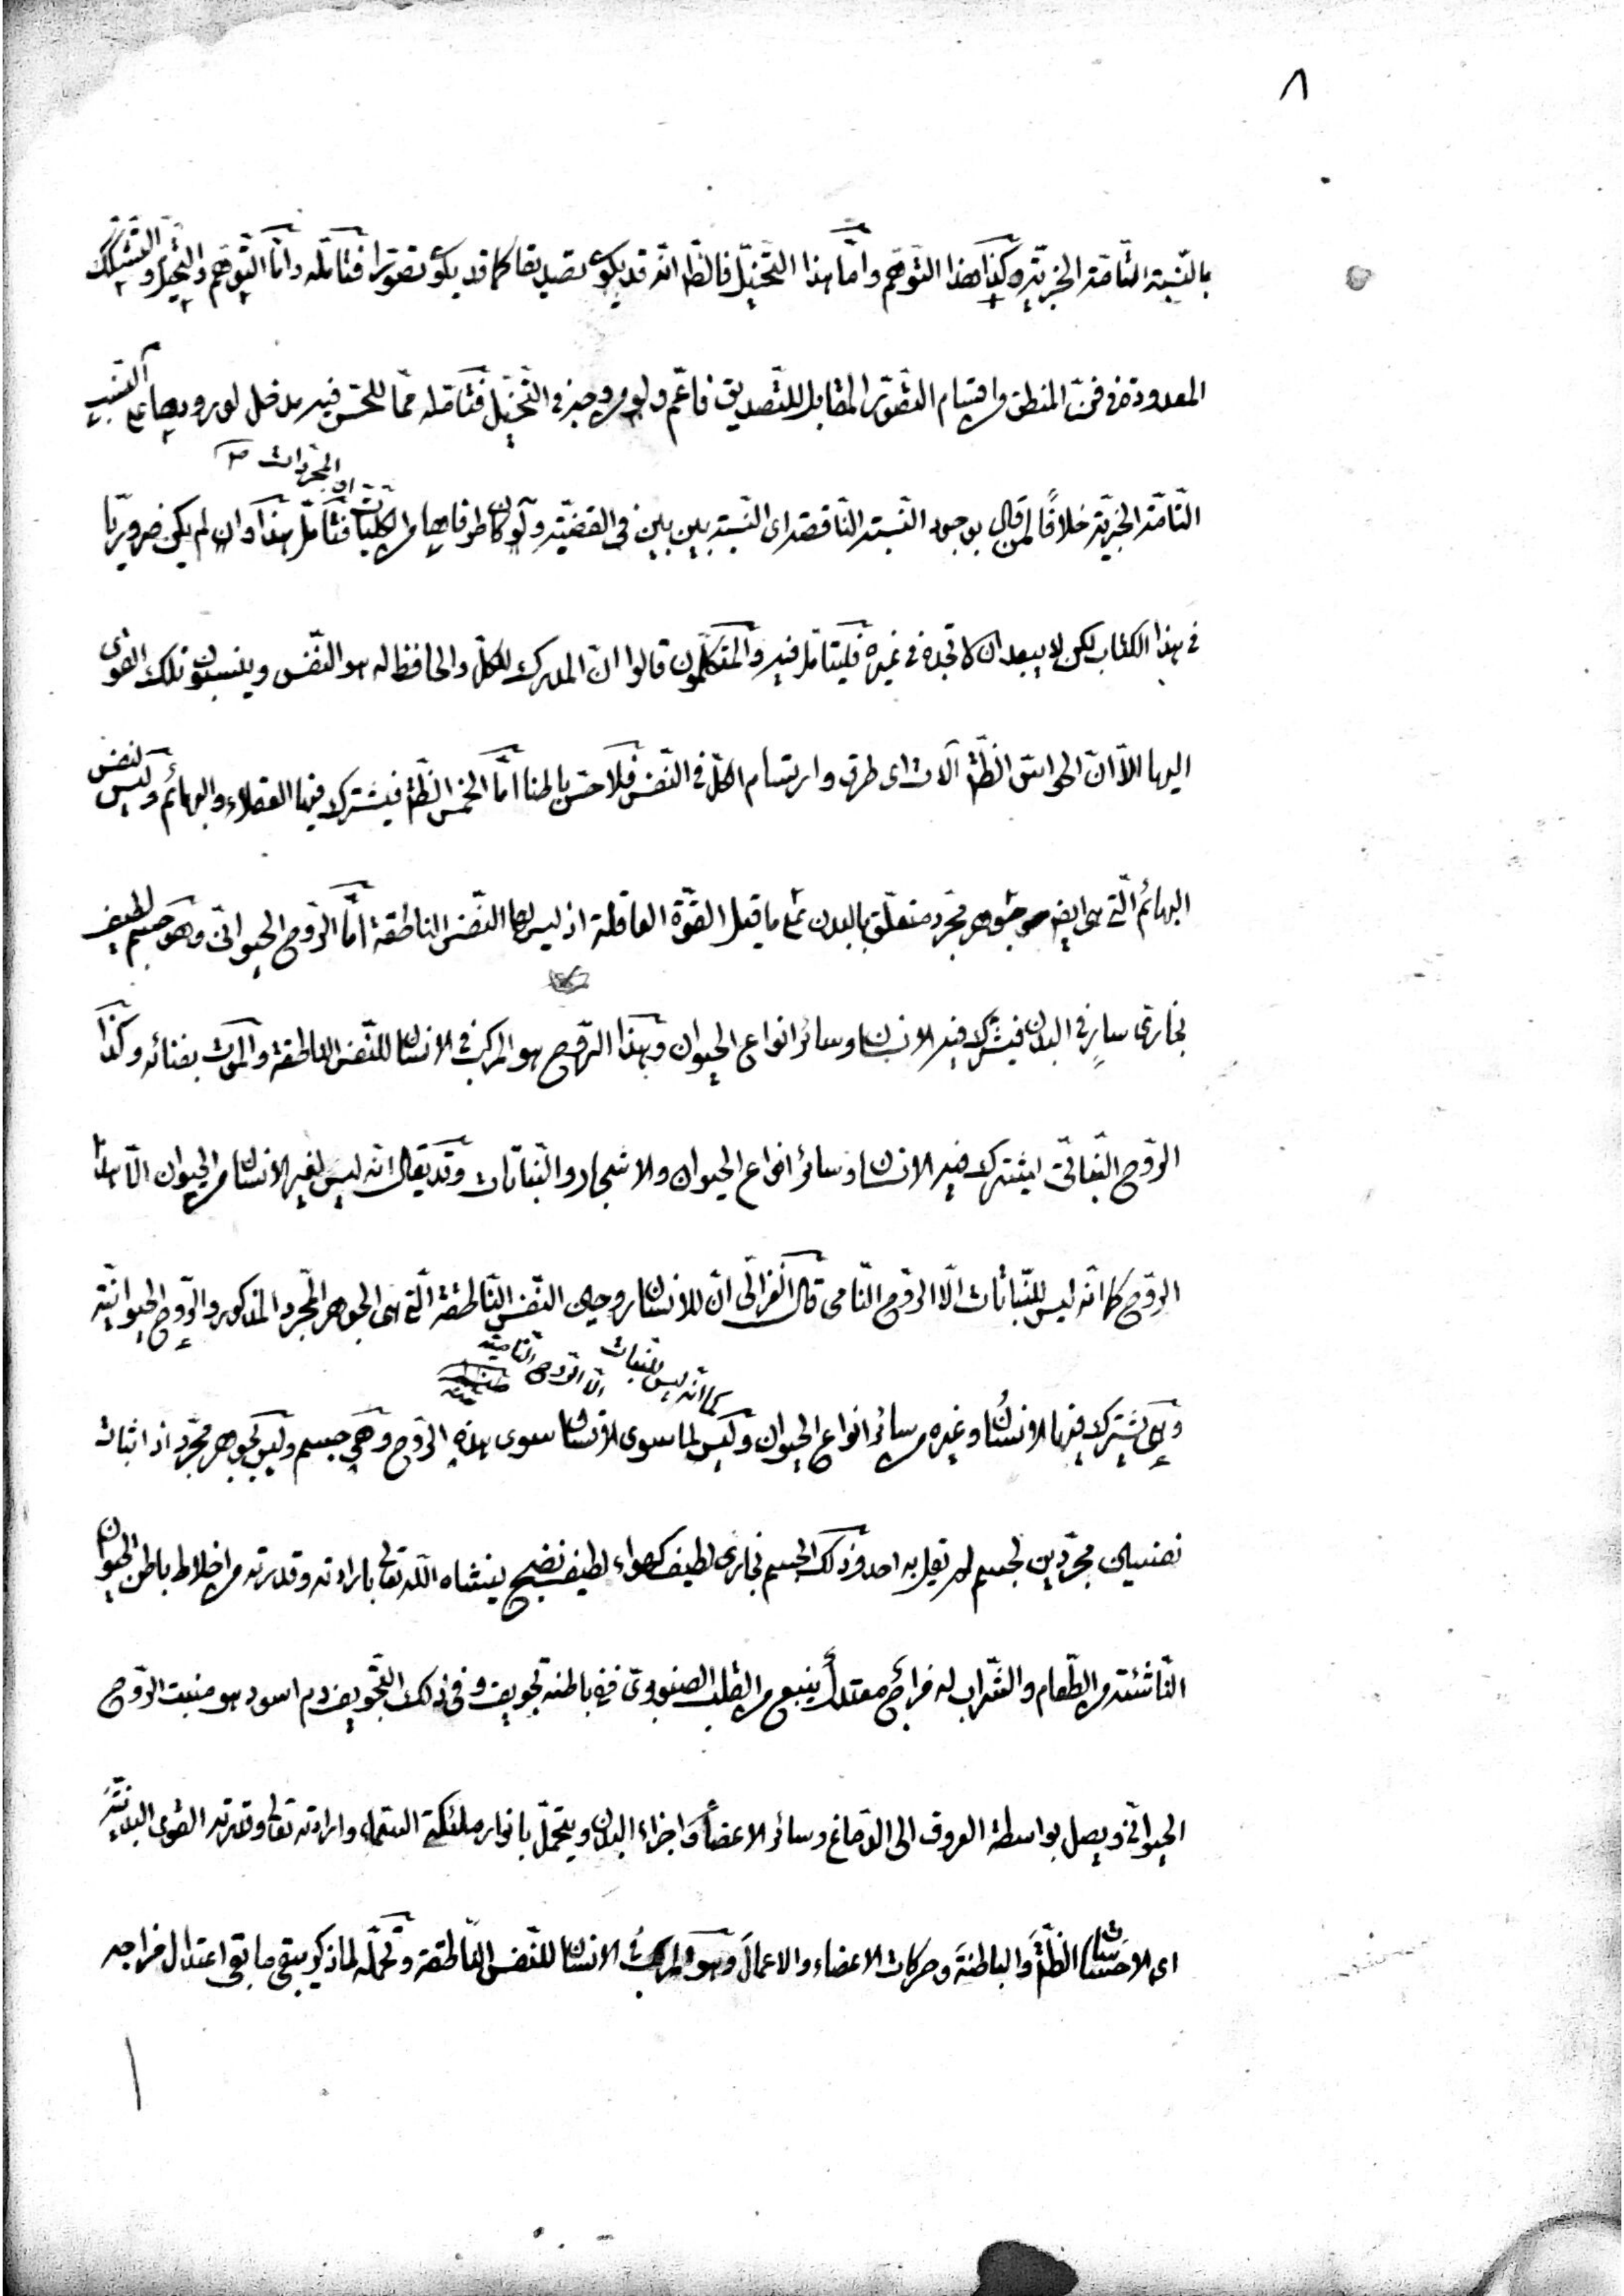 ٨
بالنّسبة التّامّة الخبريّة وكذا هذا التّوهّم وامّا هذا التّخيّل فالظّ انّه قد يكون تصديقا كما قد يكون تصوّرا فتأمّله وامّا التّوهّم والتّخيّل والتشكّك
المعدودة فى فنّ المنطق من اقسام التّصوّر المقابل للتّصديق فاعمّ ولو من وجه فى التّخيّل فتأمّله ممّا للحسّ فيه مدخل لورودها على النّسب
التّامّة الخبريّة خلافًا لمن قال بوجود النّسبة النّاقصة اى النّسبة بين بين فى القضيّة ولو كان طرفاها من الكلّيّات او المجرّدات فتأمّل هذا وان لم يكن ضروريّا
فى هذا الكتاب لكن لا يبعد ان لا تجده فى غيره فليتأمّل فيه والمتكلّمون قالوا انّ المدرك للكلّ والحافظ له هو النّفس وينسبون تلك القوى
اليها الاّ انّ الحواسّ الظّ آلات اى طرق وارتسام الكلّ فى النّفس فلا حسّ باطنا امّا الخمس الظّ فيشترك فيها العقلاء والبهائم وليس لنفس
البهائم الّتى هى ايضا جوهر مجرّد متعلّق بالبدن على ما قيل القوّة العاقلة اذ ليس لها النّفس الناطقة امّا الرّوح الحيوانىّ وهو جسم لطيف
بخارىّ سارٍ فى البدن فيشترك فيه الانسان وسائر انواع الحيوان وهذا الرّوح هو المركب فى الانسان للنّفس الناطقة والموت بفنائه وكذا
الرّوح النّباتىّ يشترك فيه الانسان وسائر انواع الحيوان والاشجار والنّباتات وقد يقال انّه ليس لغير الانسان من الحيوان الاّ هذا
الرّوح كما انّه ليس للنّباتات الّا الرّوح النّامى قال الغزالى انّ للانسان روحين النّفس النّاطقة الّتى هى الجوهر المجرّد المذكور والرّوح الحيوانيّة
وهى يشترك فيها الانسان وغيره من سائر انواع الحيوان وليس لما سوى الانسان سوى هذه الرّوح كما انّه ليس للنبات الاّ الرّوح النّامية وهى جسم وليس بجوهر مجرّد اذ اثبات
نفسين مجرّدين لجسم لم يقل به احد وذلك الجسم بخارى لطيف كهواء لطيف نضيج ينشاه اللّه تعالى بارادته وقدرته من اخلاط باطن الحيوان
النّاشئة من الطّعام والشّراب له مزاج معتدل ينبع من القلب الصنوبرىّ ففى باطنه تجويف وفى ذلك التّجويف دم اسود هو منبت الرّوح
الحيوانىّ ويصل بواسطة العروق الى الدّماغ وسائر الاعضاء واجزاء البدن ويتحمّل بانوار ملئكة السّماء وارادته تعالى وقدرته القوى البدنيّة
اى الاحساسات الظّ والباطنة وحركات الاعضاء والاعمال وهو المركب فى الانسان للنّفس النّاطقة وتحمّله لما ذكر يبقى ما بقى اعتدال مزاجه